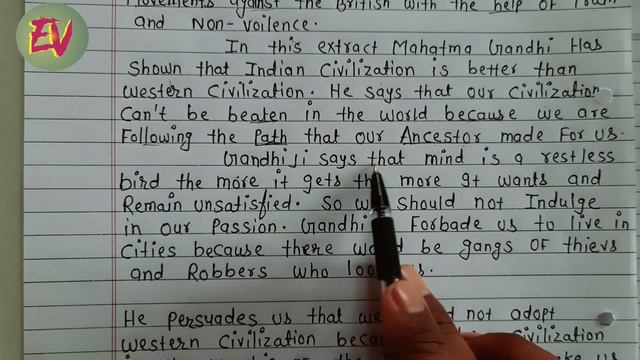 EV
Movements against the British with the help of Truth
and Non-Voilence.
In this extract Mahatma Gandhi Has
Shown that Indian Civilization is better than
Western Civilization. He says that our Civilization
Can't be beaten in the world because we are
Following the Path that our Ancestor made For us.
Gandhi Ji says that mind is a restless
bird the more it gets the more It wants and
Remain unsatisfied. So we should not Indulge
in our Passion. Gandhi Forbade us to live in
Cities because there would be gangs OF thievs
and Robbers who loot us.
He persuades us that we not adopt
Western Civilization Civilization